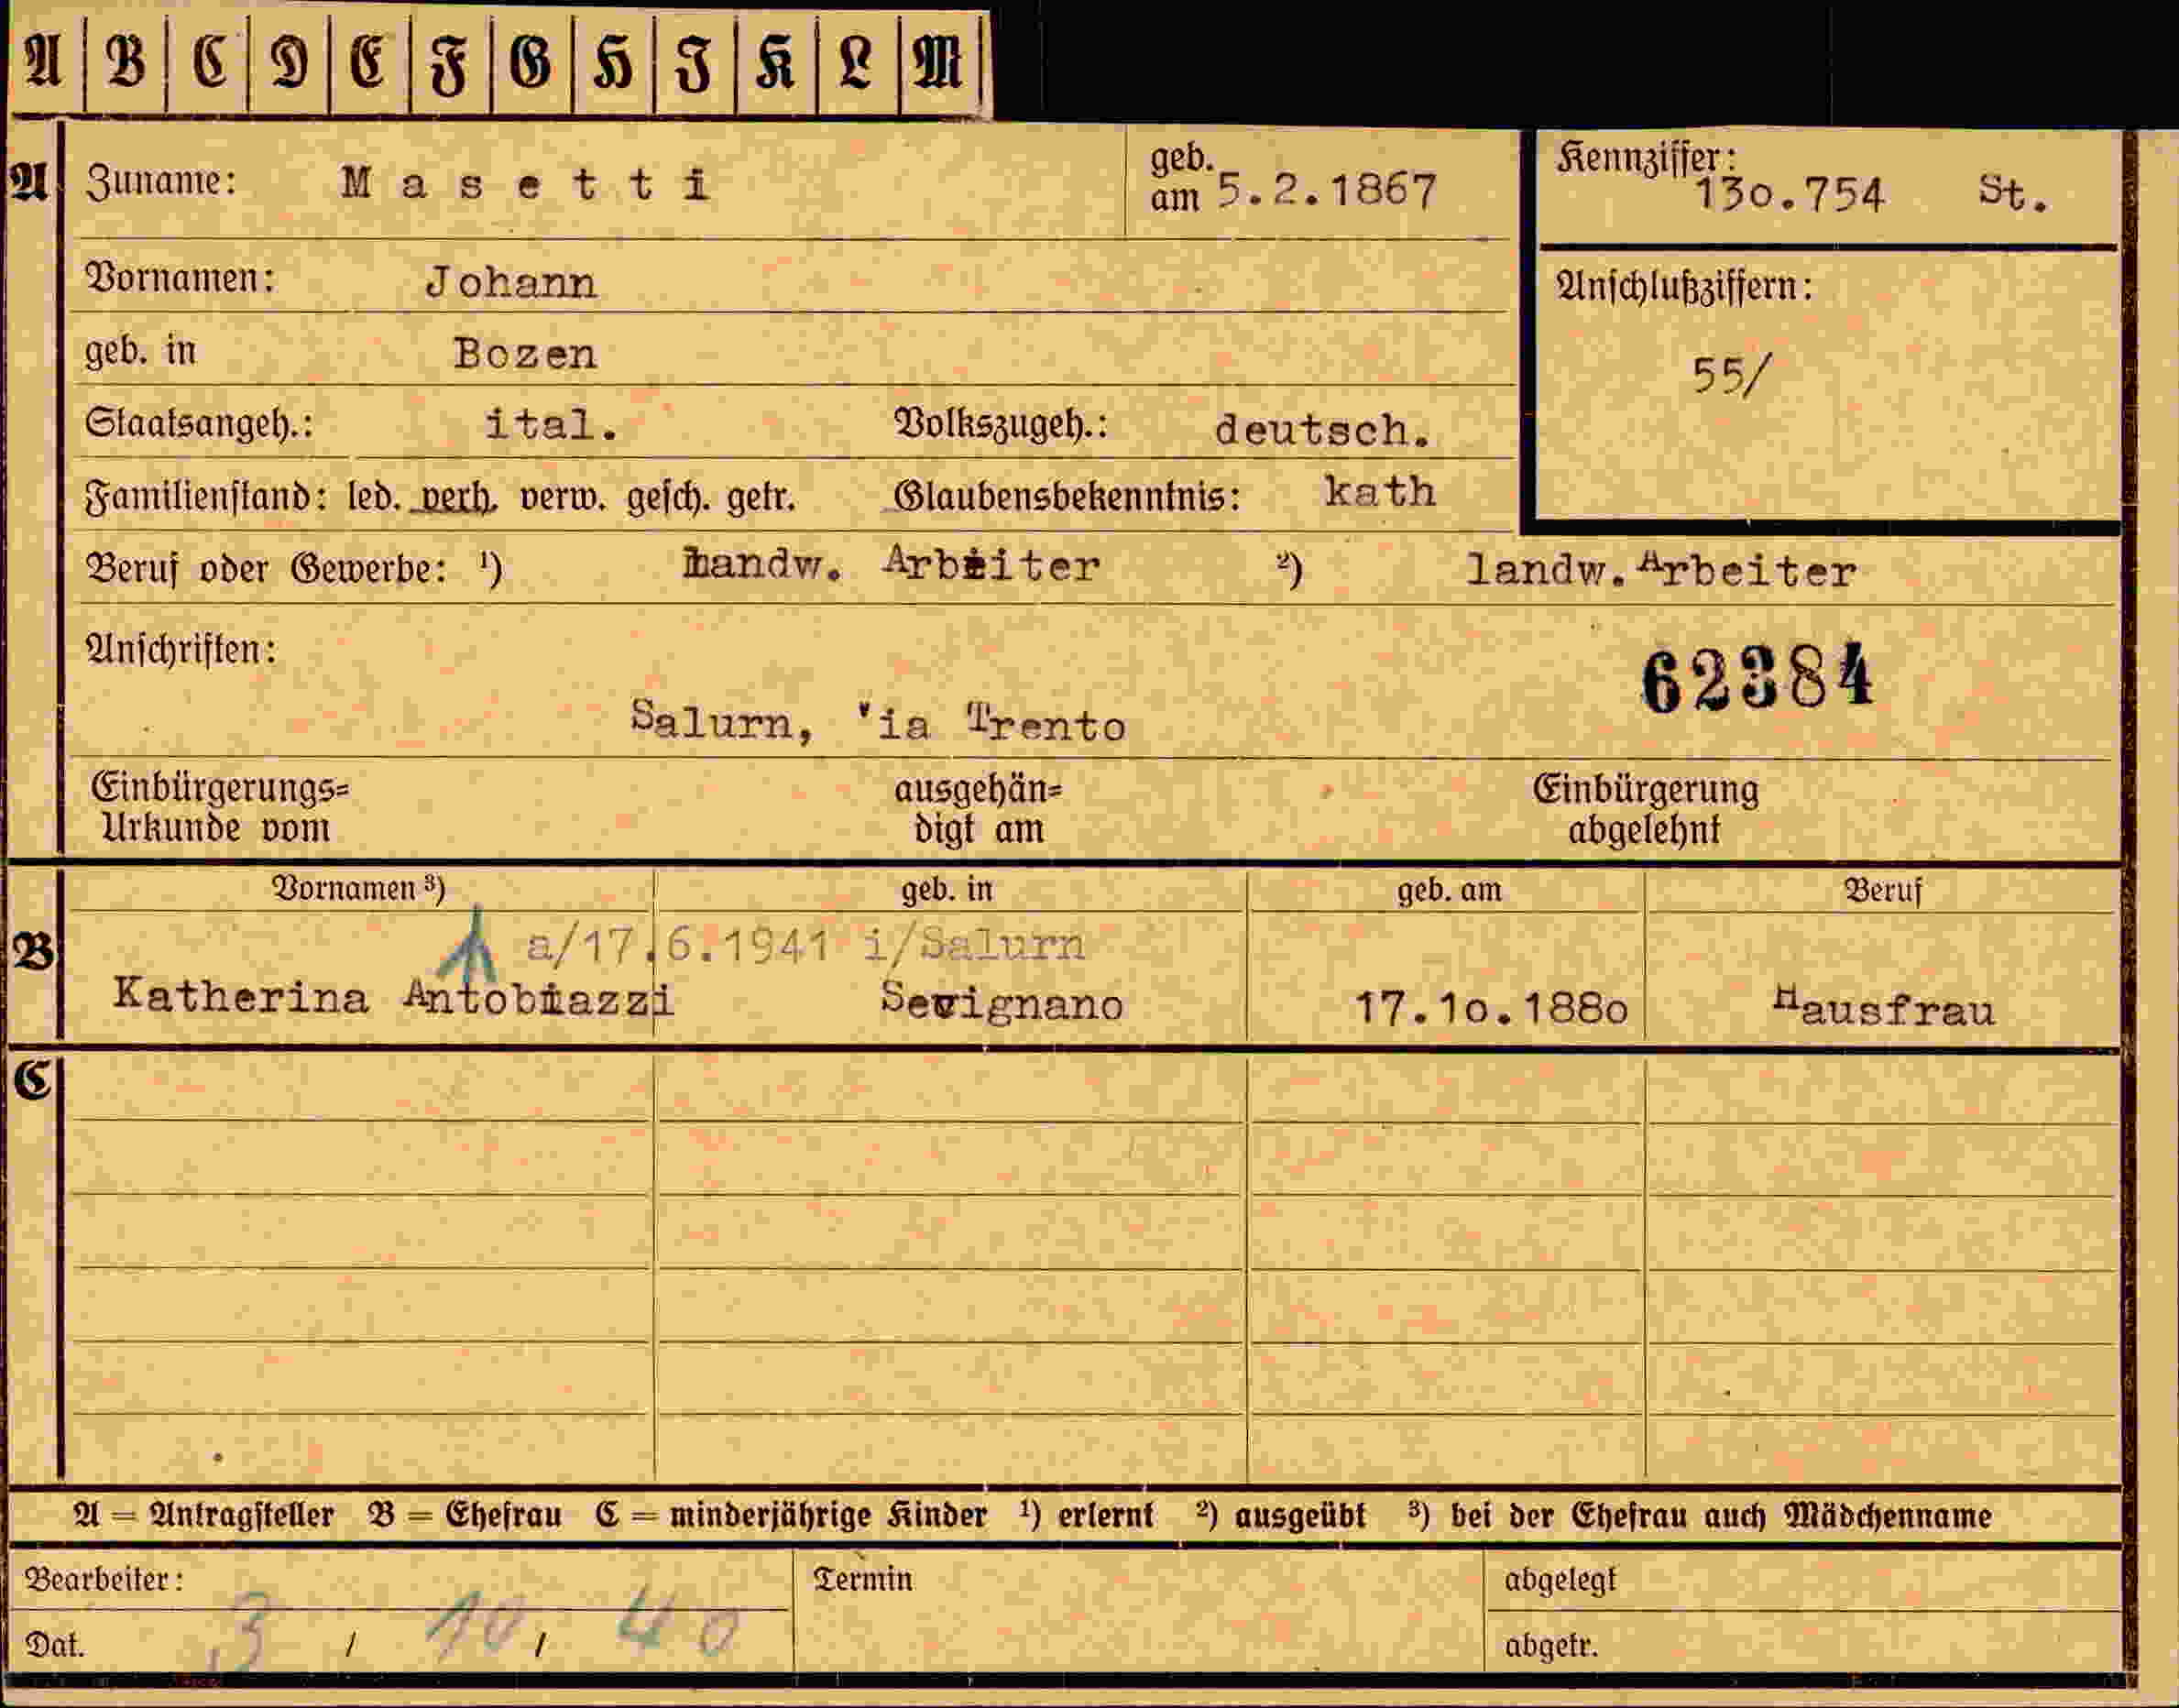 A B C D E F G H J K L M
A Zuname: Masetti geb. am 5.2.1867 Kennziffer: 130.754 St.
Vornamen: Johann Anschlußziffern:
geb. in Bozen 55/
Staatsangeh.: ital. Volkszugeh.: deutsch.
Familienstand: led. verh. verw. gesch. getr. Glaubensbekenntnis: kath
Beruf oder Gewerbe: ¹) landw. Arbeiter ²) landw. Arbeiter
Anschriften: 62384
Salurn, Via Trento
Einbürgerungs= ausgehän= Einbürgerung
Urkunde vom digt am abgelehnt
Vornamen ³) geb. in geb. am Beruf
B a/17.6.1941 i/Salurn
Katherina Antobiazzi Sevignano 17.10.1880 Hausfrau
C
A = Antragsteller B = Ehefrau C = minderjährige Kinder ¹) erlernt ²) ausgeübt ³) bei der Ehefrau auch Mädchenname
Bearbeiter: Termin abgelegt
Dat. 3 / 10 / 40 abgetr.